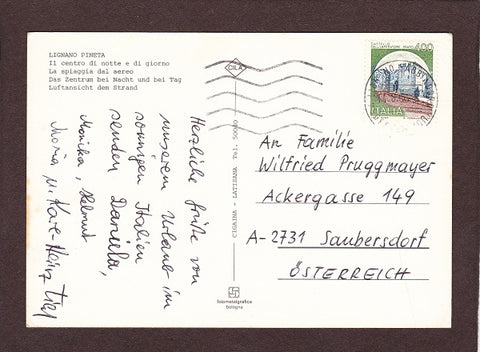 LIGNANO PINETA
Il centro di notte e di giorno
La spiaggia dal aereo
Das Zentrum bei Nacht und bei Tag
Luftansicht dem Strand
CILA
400
ITALIA
Herzliche Grüße von
unserem Urlaub im
sonnigen Italien
senden Daniela,
Monika, Helmut
Maria u. Karl-Heinz
CIGAINA - LATISANA Tel. 50040
An Familie
Wilfried Pruggmayer
Ackergasse 149
A-2731 Saubersdorf
ÖSTERREICH
fotometalgrafica
bologna